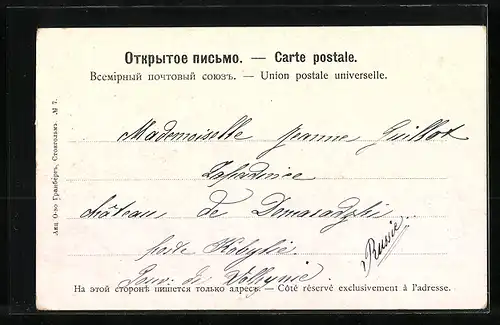 Открытое письмо. — Carte postale.
Всемірный почтовый союзъ. — Union postale universelle.
Mademoiselle Jeanne Guillot
château de Domaradzki
poste Kobylié
Gouv. de Volhynie.
Russie
На этой сторонѣ пишется только адресъ. — Côté réservé exclusivement à l'adresse.
Акц О-во Гранбергъ, Стокгольмъ. № 7.